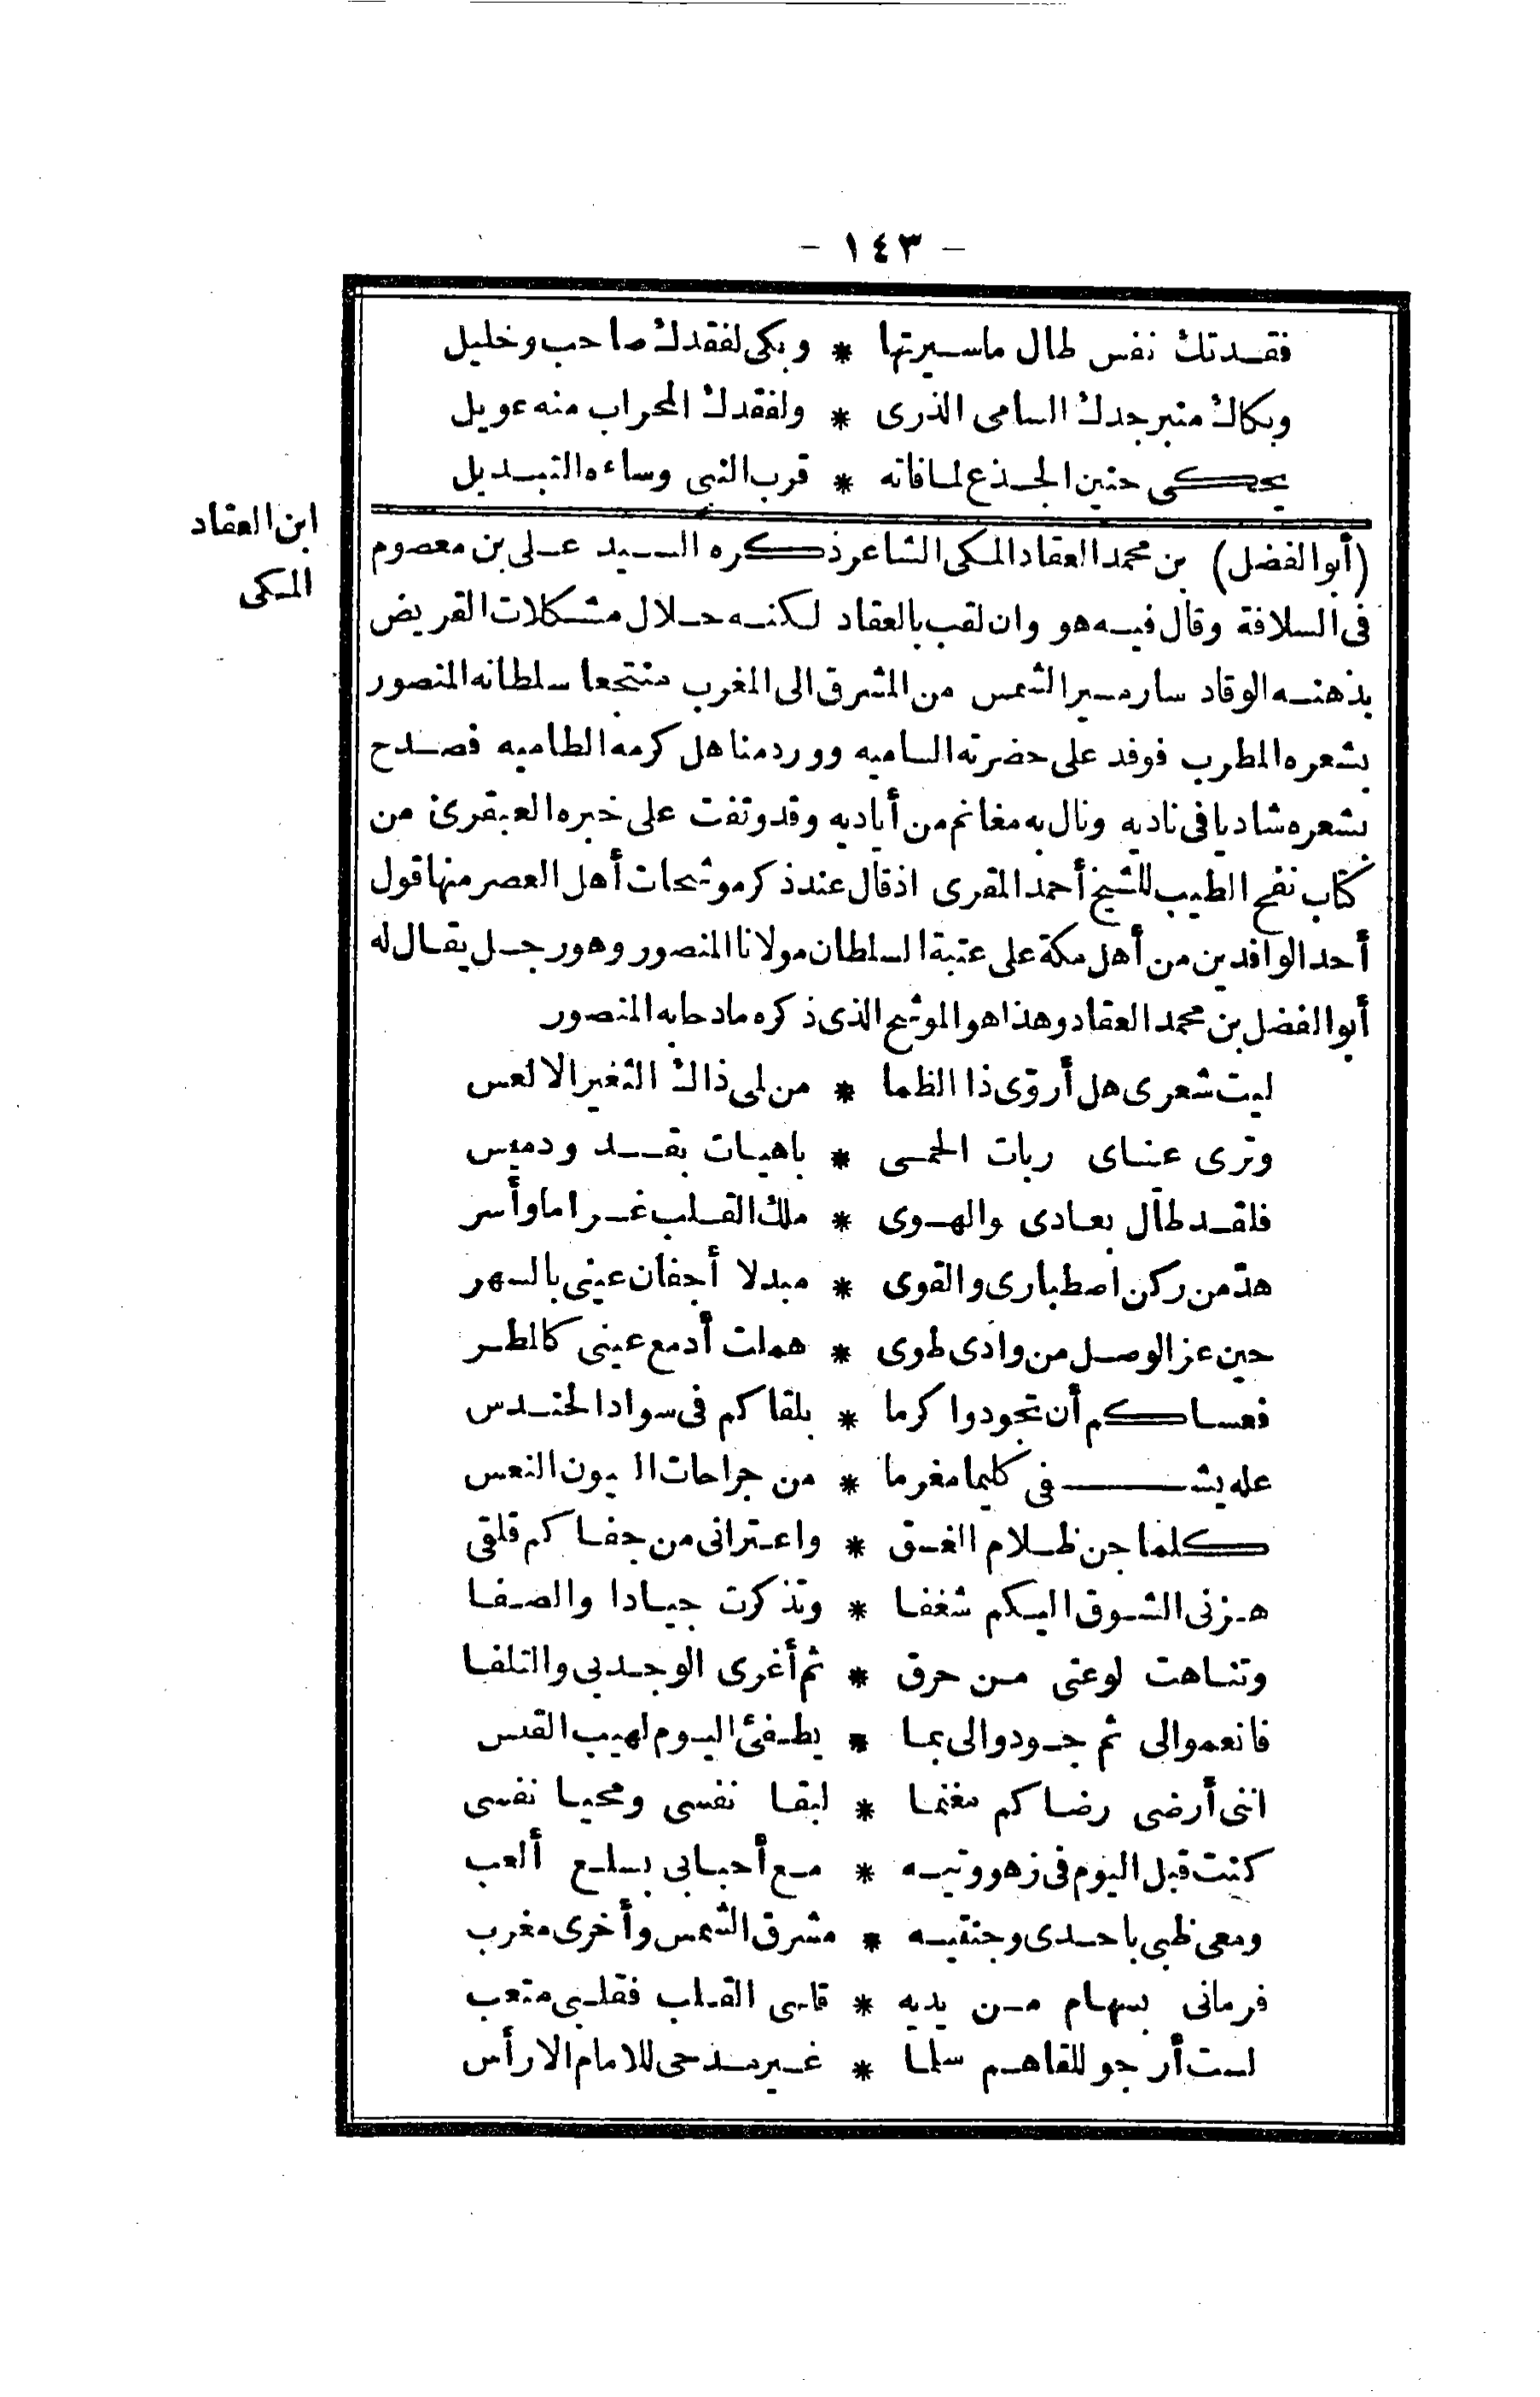 - ١٤٣ -
فقدتك نفس طال ماسيرتها * وبكى لفقدك صاحب وخليل
وبكاك منبر جدك السامى الذرى * ولفقدك المحراب منه عويل
يحكى حنين الجذع لما فاته * قرب النبى وساءه التبديل
ابن العقاد
المكى
(أبو الفضل) بن محمد العقاد المكى الشاعر ذكره السيد على بن معصوم
فى السلافة وقال فيه هو وان لقب بالعقاد لكنه حلال مشكلات القريض
بذهنه الوقاد سار مسير الشمس من المشرق الى المغرب منتجعا سلطانه المنصور
بشعره المطرب فوفد على حضرته الساميه وورد مناهل كرمه الطاميه فصدح
بشعره شاديا فى ناديه ونال به مغانم من أياديه وقد وتفت على خبره العبقرى من
كتاب نفح الطيب للشيخ أحمد المقرى اذ قال عند ذكر موشحات أهل العصر منها قول
أحد الوافدين من أهل مكة على عتبة السلطان مولانا المنصور وهو رجل يقال له
أبو الفضل بن محمد العقاد وهذا هو الموشح الذى ذكره مادحا به المنصور
ليت شعرى هل أروّى ذا الظما * من لمى ذاك الثغير الالعس
وترى عيناى ربات الحمى * باهيات بقد ودميس
فلقد طال بعادى والهوى * ملك القلب غراما وأسر
هدّ من ركن اصطبارى والقوى * مبدلا أجفان عينى بالسهر
حين عز الوصل من وادى طوى * هملت أدمع عينى كالمطر
فعساكم أن تجودوا كرما * بلقاكم فى سواد الحندس
عله يشفى كليما مغرما * من جراحات العيون النعس
كلما جن ظلام الغسق * واعترانى من جفاكم قلقى
هزنى الشوق اليكم شغفا * وتذكرت جيادا والصفا
وتناهت لوعتى من حرق * ثم أغرى الوجد بى والتلفا
فانعموا لى ثم جودوا لى بما * يطفئ اليوم لهيب القبس
اننى أرضى رضاكم مغنما * لبقا نفسى ومحيا نفسى
كنت قبل اليوم فى زهو وتيه * مع أحبابى بسلع ألعب
ومعى ظبى باحدى وجنتيه * مشرق الشمس وأخرى مغرب
فرمانى بسهام من يديه * قاسى القلب فقلبى متعب
لست أرجو للقاهم سلما * غير مدحى للامام الارأس